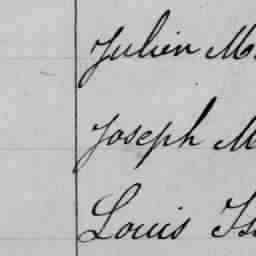 Julien M
Joseph M
Louis Is